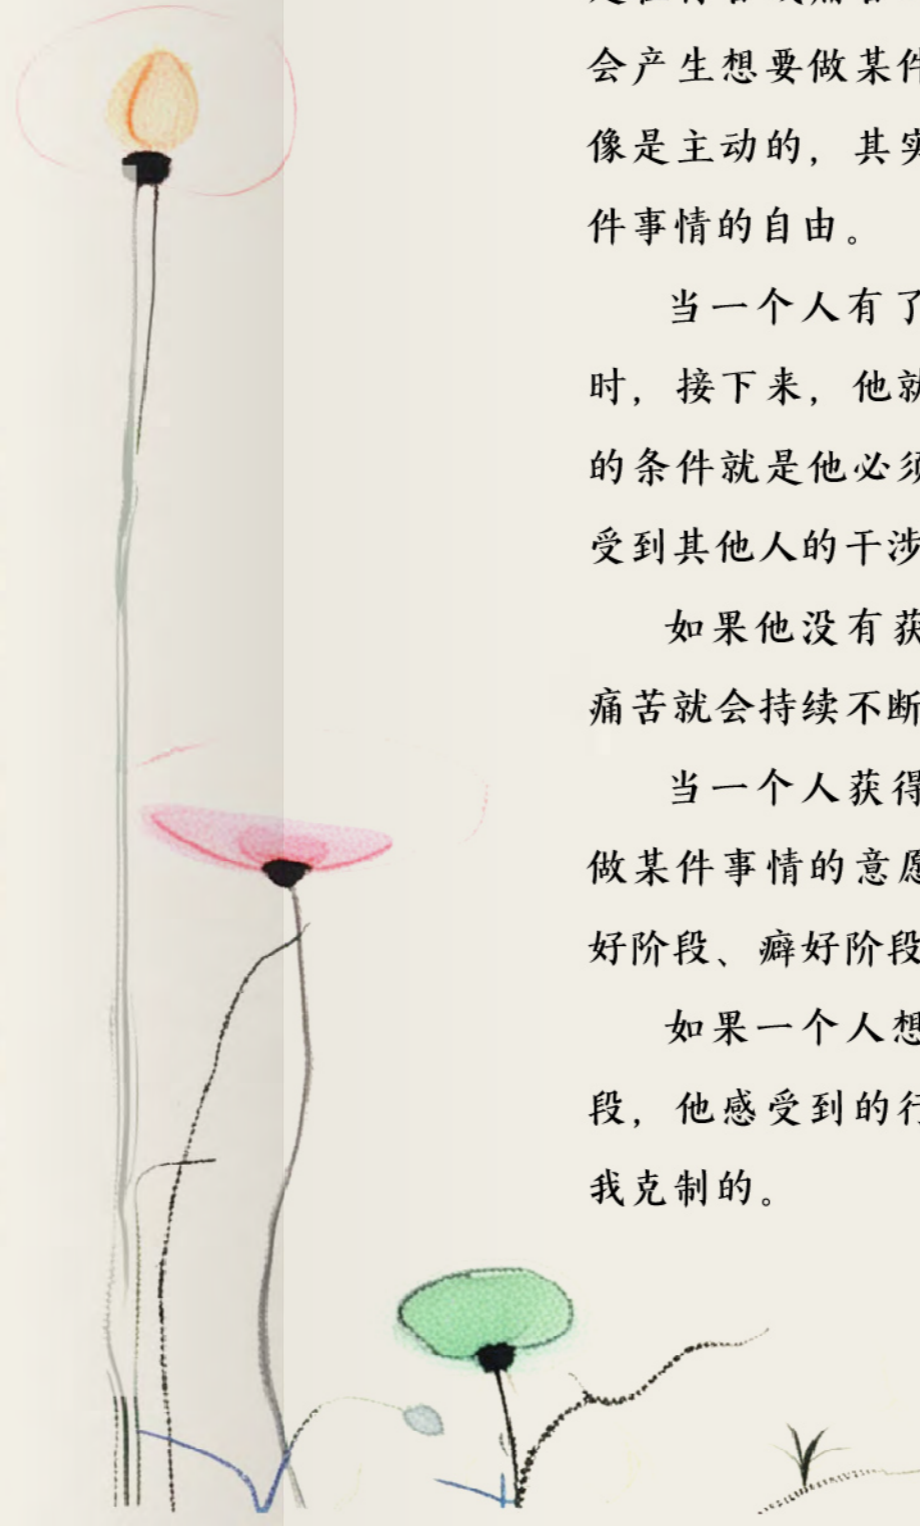 会产生想要做某件
像是主动的，其实
件事情的自由。
当一个人有了
时，接下来，他就
的条件就是他必须
受到其他人的干涉
如果他没有获
痛苦就会持续不断
当一个人获得
做某件事情的意愿
好阶段、癖好阶段
如果一个人想
段，他感受到的行
我克制的。